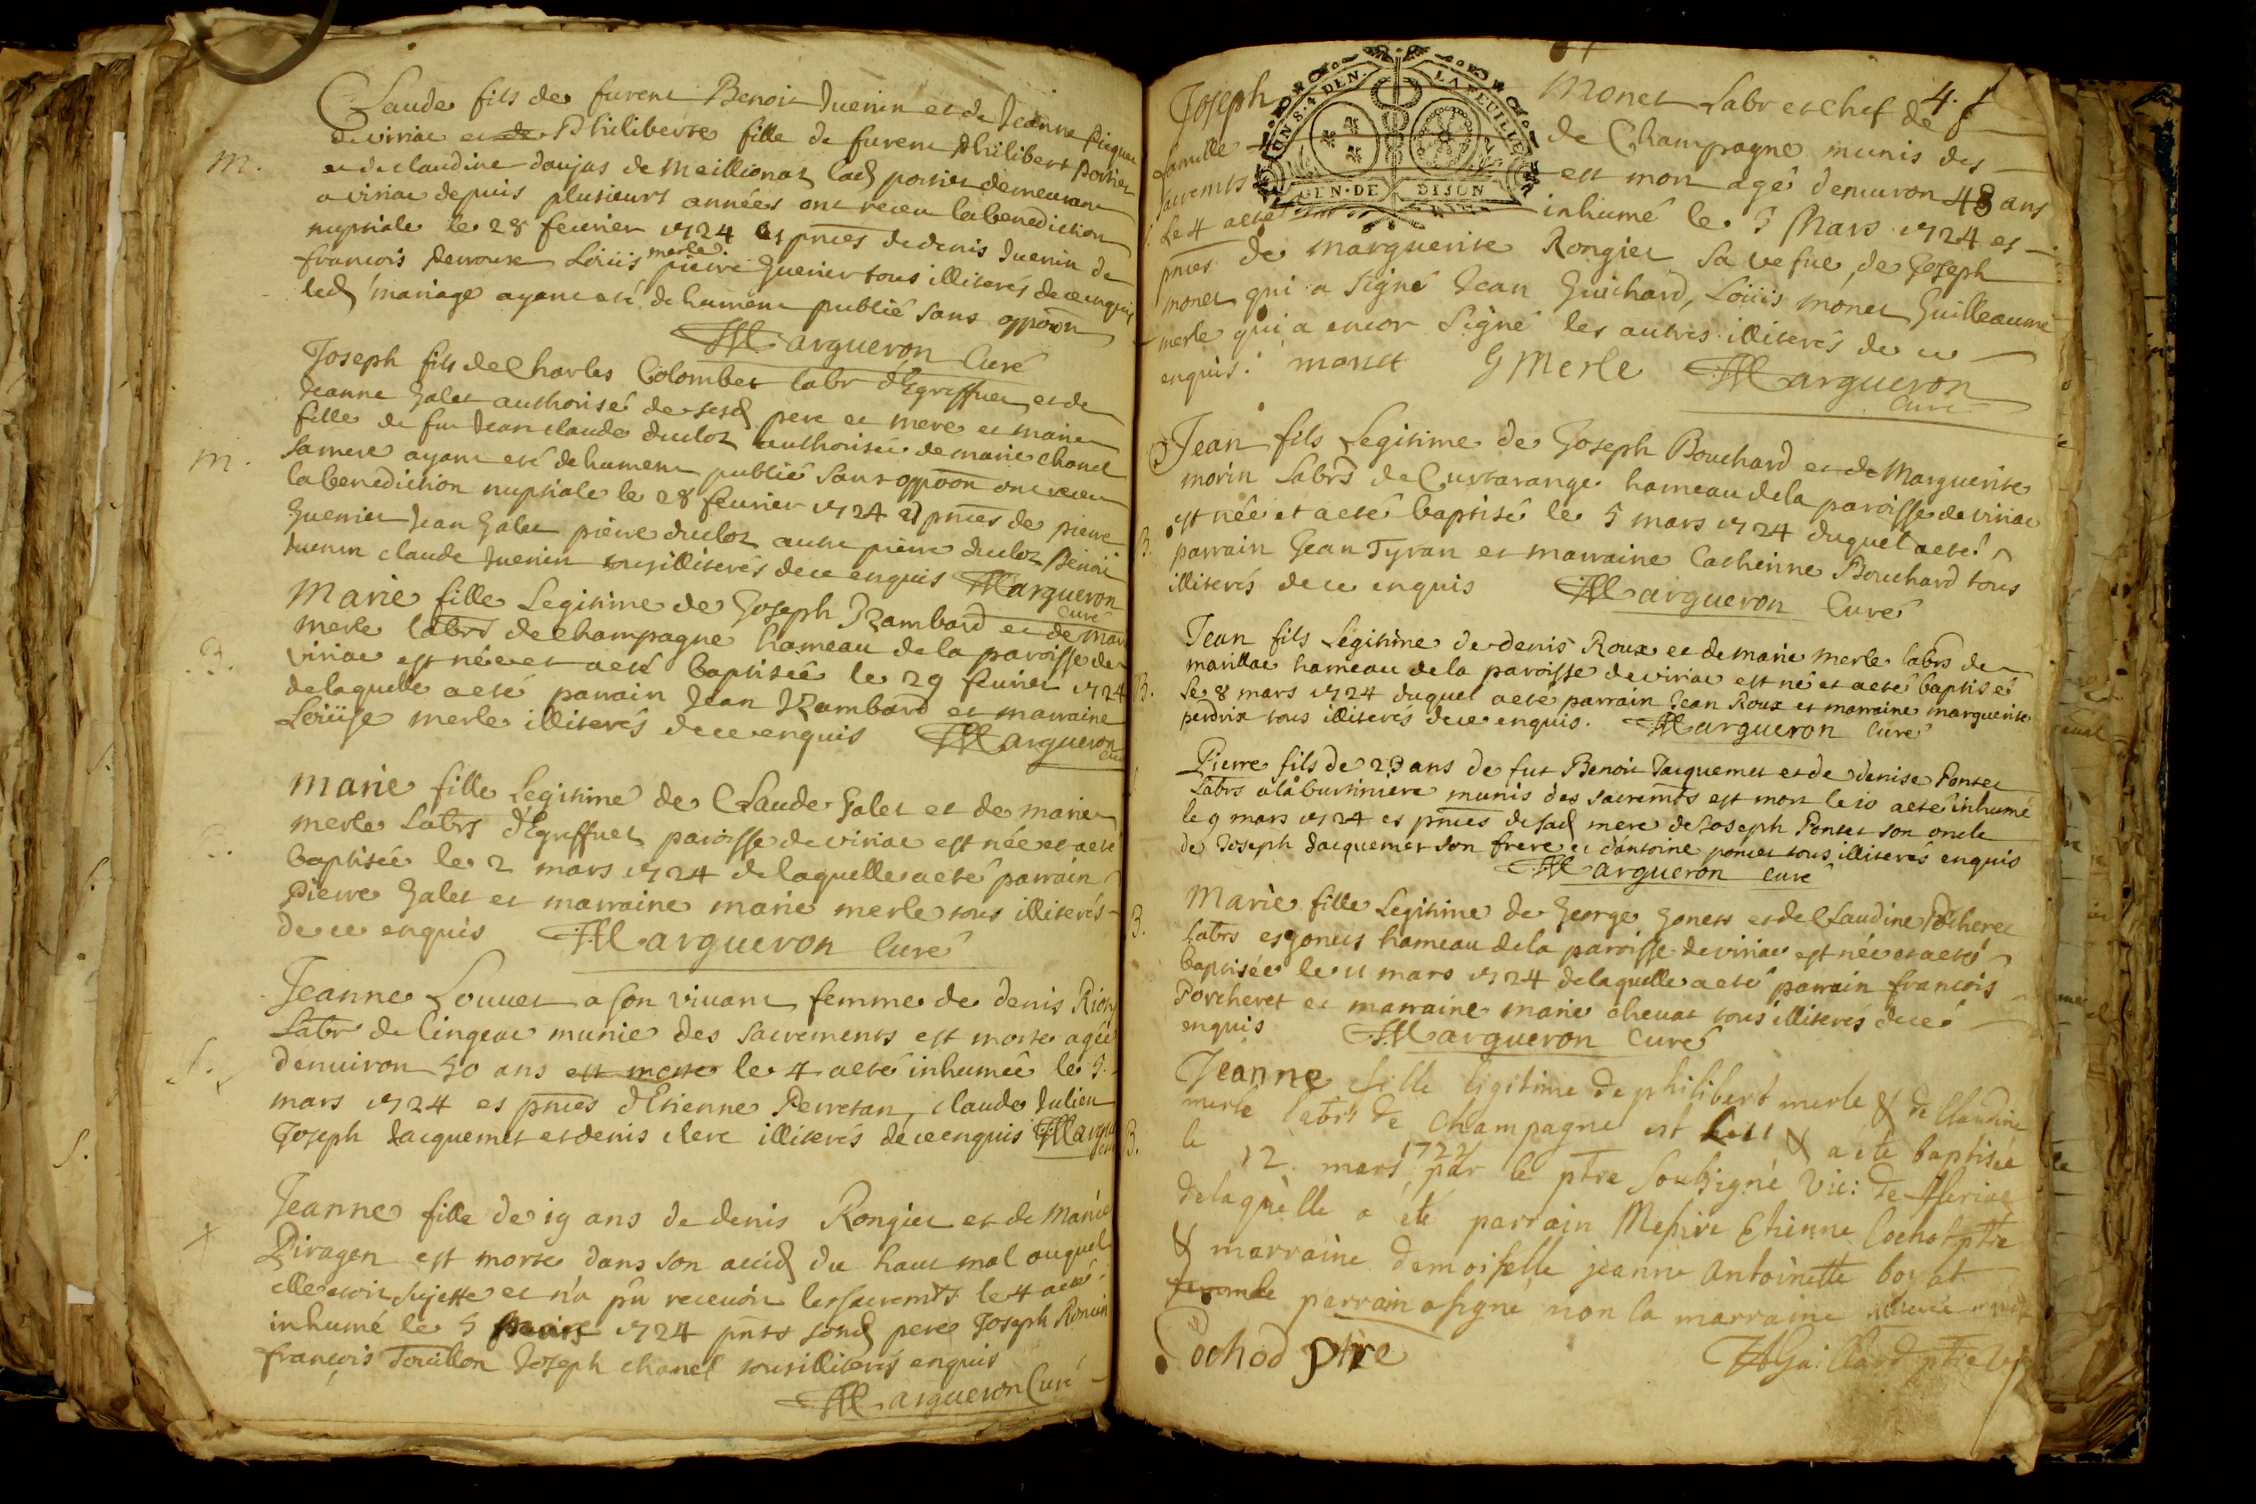 Claude fils de furent Benoit Juenin et de Jeanne Piquet
de viriac et de Philiberte fille de furent Philibert Poitier
M.
et de claudine daujas de Meillionat lad poitier demeurant
a viriac depuis plusieurs années ont receu la benediction
nuptiale le 28 fevrier 1724 es pntes de denis Juenin de
francois Perroux Loüis merle pierre Guenier tous illiterés de ce enquis
led mariage ayant eté dehument publié sans oppoon
Margueron Curé
Joseph fils de Charles Colombet labr d'Egreffuet et de
Jeanne Galet authorisé de sesd pere et mere et marie
fille de fut Jean claude duclot authorisée de marie chanel
M.
sa mere ayant eté dehument publié sans oppoon ont receu
la benediction nuptiale le 28 fevrier 1724 es pntes de pierre
Guenier Jean Galet pierre duclot autre pierre duclot Benoit
Juenin claude Juenin tous illiterés de ce enquis Margueron
Curé
Marie fille Legitime de Joseph Rambard et de marie
merle labrs de champagne hameau de la paroisse de
B.
viriac est née et a eté baptisée le 29 fevrier 1724
de laquelle a eté parrain Jean Rambard et marraine
Loüise merle illiterés de ce enquis Margueron
Curé
Marie fille Legitime de Claude Galet et de marie
merle Labrs d'Egreffuet paroisse de viriac est née et a eté
B.
baptisée le 2 mars 1724 de laquelle a eté parrain
Pierre Galet et marraine marie merle tous illiterés
de ce enquis Margueron Curé
Jeanne Louuet a son vivant femme de denis Rion
Labr de lingeat munie des sacrements est morte agée
S.
denuiron 50 ans est morte le 4 a eté inhumée le 5
mars 1724 es pntes d'Etienne Perretan, claude Julien
Joseph Jacquemet et denis clerc illiterés de ce enquis Margueron
S.
Jeanne fille de 19 ans de denis Rongier et de Marie
Piragon est morte dans son accid du haut mal auquel
elle etoit sujette et n'a pû recevoir les sacremts le 4 a eté
inhumé le 5 mars 1724 pnts sond pere Joseph Roncin
françois Touillon Joseph chanel tous illiterés enquis
Margueron Curé
4.
UN S. 4 DEN. LA FEUILLE
GEN. DE DIJON
Joseph Monet Labr et chef de
famille de Champagne munis des
sacremts est mort agé denuiron 48 ans
Le 4 a eté inhumé le 5 Mars 1724 es
pntes de marguerite Rongier sa vefue de Joseph
monet qui a signé Jean Guichard, Loüis monet Guilleaume
merle qui a encor signé les autres illiterés de ce
enquis. monet G Merle Margueron
Curé
Jean fils Legitime de Joseph Bouchard et de Marguerite
morin Labrs de Curtarange hameau de la paroisse de viriac
est née et a eté baptisé le 5 mars 1724 duquel a eté
B.
parrain Jean Tyran et marraine Catherine Bouchard tous
illiterés de ce enquis Margueron Curé
Jean fils Legitime de denis Roux et de marie merle labrs de
marillac hameau de la paroisse de viriac est né et a eté baptisé
B.
le 8 mars 1724 duquel a eté parrain Jean Roux et marraine marguerite
perdrix tous illiterés de ce enquis. Margueron Curé
Pierre fils de 23 ans de fut Benoit Jacquemet et de denise Ponset
Labrs a la burtiniere munis des sacremts est mort le 10 a eté inhumé
le 9 mars 1724 es pntes de sad mere de Joseph Ponset son oncle
de Joseph Jacquemet son frere et d'antoine poncet tous illiterés enquis
Margueron Curé
Marie fille Legitime de George Gonet et de Claudine Porcheret
B.
Labrs es gonets hameau de la paroisse de viriac est née et a eté
baptisée le 11 mars 1724 de laquelle a eté parrain francois
Porcheret et marraine marie chevat tous illiterés de ce
enquis Margueron Curé
Jeanne fille legitime de philibert merle & de Claudine
merle labrs de Champagne est née & a ete baptisée
B.
le 12 mars 1724 par le ptre soubsigné vic: de viriac
delaquelle a été parrain Messire Etienne Cochot ptre
& marraine demoiselle jeanne antoinette boyat
parrain a signé non la marraine
Cochod ptre Gaillard ptre